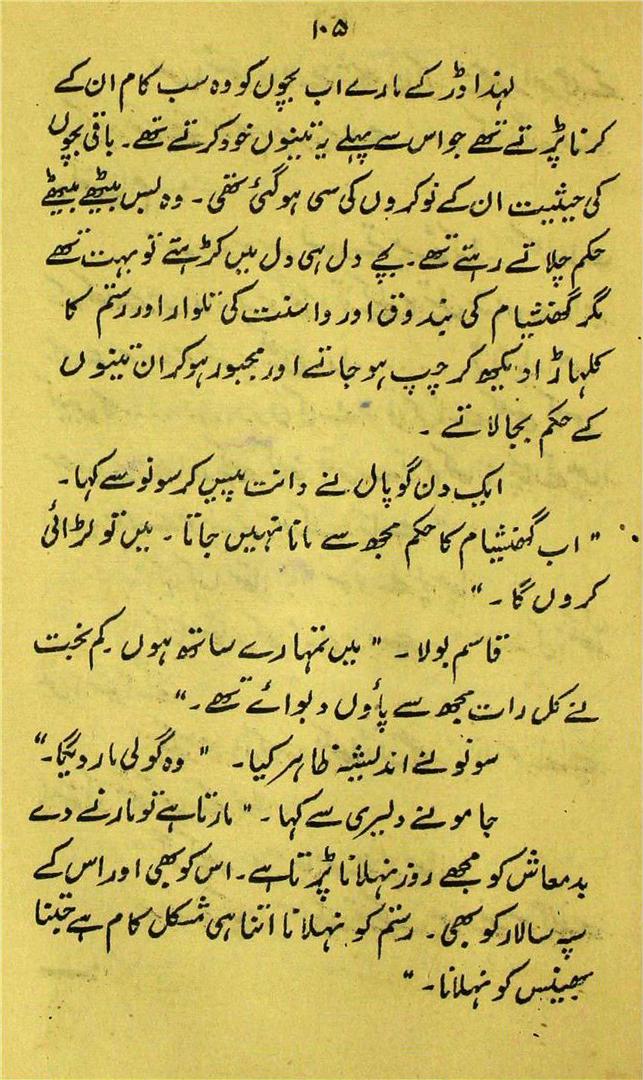 ۱۰۵
لہذا ڈر کے مارے اب بچوں کو وہ سب کام ان کے
کرنا پڑتے تھے جو اس سے پہلے یہ تینوں خود کرتے تھے۔ باقی بچوں
کی حیثیت ان کے نوکروں کی سی ہو گئی تھی۔ وہ بس بیٹھے بیٹھے
حکم چلاتے رہتے تھے۔ بچے دل ہی دل میں کڑہتے تو بہت تھے
مگر گھنشیام کی بندوق اور واسنت کی تلوار اور رستم کا
کلہاڑا دیکھ کر چپ ہو جاتے اور مجبور ہو کر ان تینوں
کے حکم بجا لاتے ۔
ایک دن گوپال نے دانت پیس کر سونو سے کہا۔
" اب گھنشیام کا حکم مجھ سے مانا نہیں جاتا ۔ میں تو لڑائی
کروں گا ۔ "
قاسم بولا ۔ " میں تمہارے ساتھ ہوں کم بخت
نے کل رات مجھ سے پاؤں دبوائے تھے ۔"
سونو نے اندیشہ ظاہر کیا ۔ " وہ گولی مار دیگا ۔"
جامو نے دلیری سے کہا ۔ " مارتا ہے تو مارنے دے
بدمعاش کو مجھے روز نہلانا پڑتا ہے ۔ اس کو بھی اور اس کے
سپہ سالار کو بھی ۔ رستم کو نہلانا اتنا ہی مشکل کام ہے جتنا
بھینس کو نہلانا ۔ "